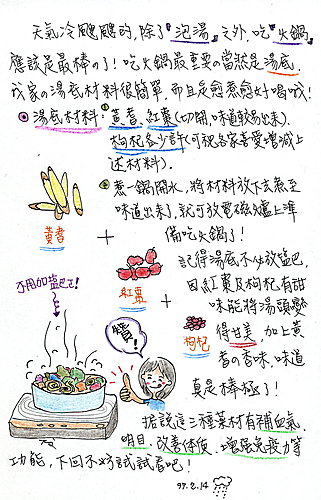 天氣冷颼颼的,除了"泡湯"之外,吃"火鍋"
應該是最棒的了!吃火鍋最重要的當然是湯底,
我家の湯底材料很簡單,而且是愈煮愈好喝哦!
湯底材料:黃耆、紅棗(切開,味道較易出來).
枸杞各少許(可視各家喜愛增減上
述材料).
煮一鍋開水,將材料放下去煮至
味道出來了,就可放電磁爐上準
備吃火鍋了!
黃耆
+
紅棗
+
枸杞
記得湯底不必放鹽巴,
因紅棗及枸杞有甜
味能將湯頭變
得甘美,加上黃
耆の香味,味道
真是棒極了!
不用加鹽巴了!
讚!
據說這三種藥材有補血氣.
明目.改善体質.增强免疫力等
功能,下回不妨試試看吧!
97.2.14